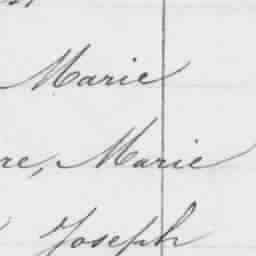 Marie
re, Marie
Joseph